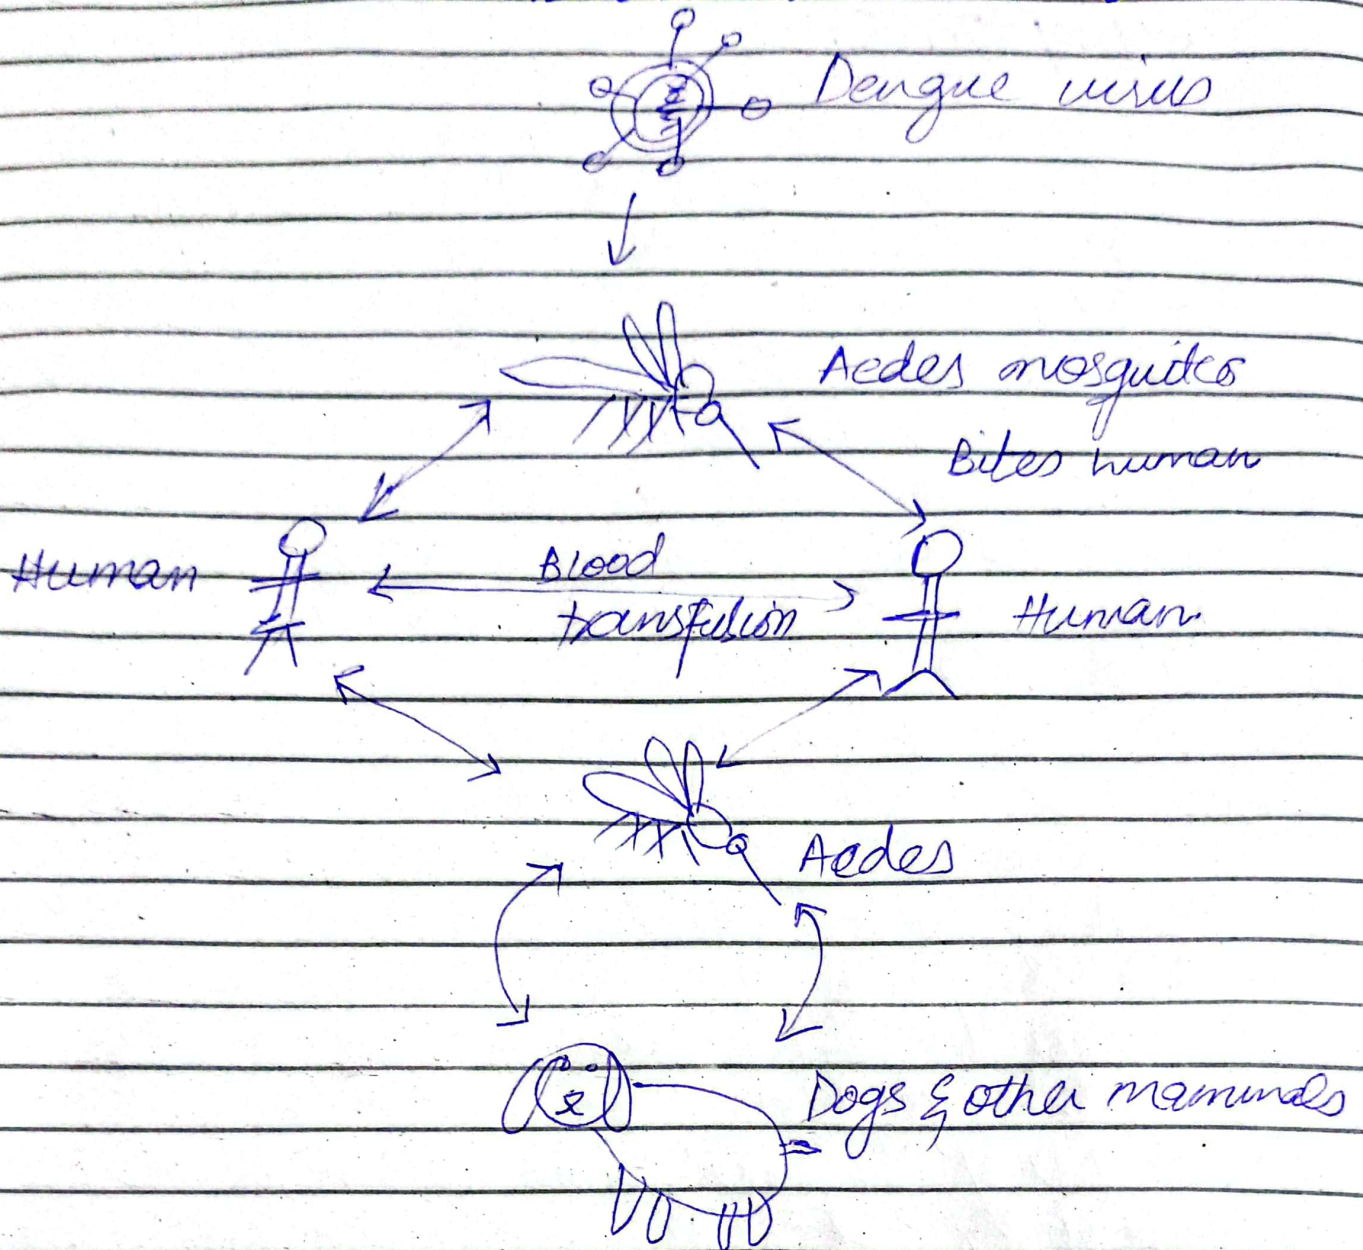 Dengue virus
Aedes mosquitos
Bites human
Human
Blood
transfusion
Human
Aedes
Dogs & other mammals